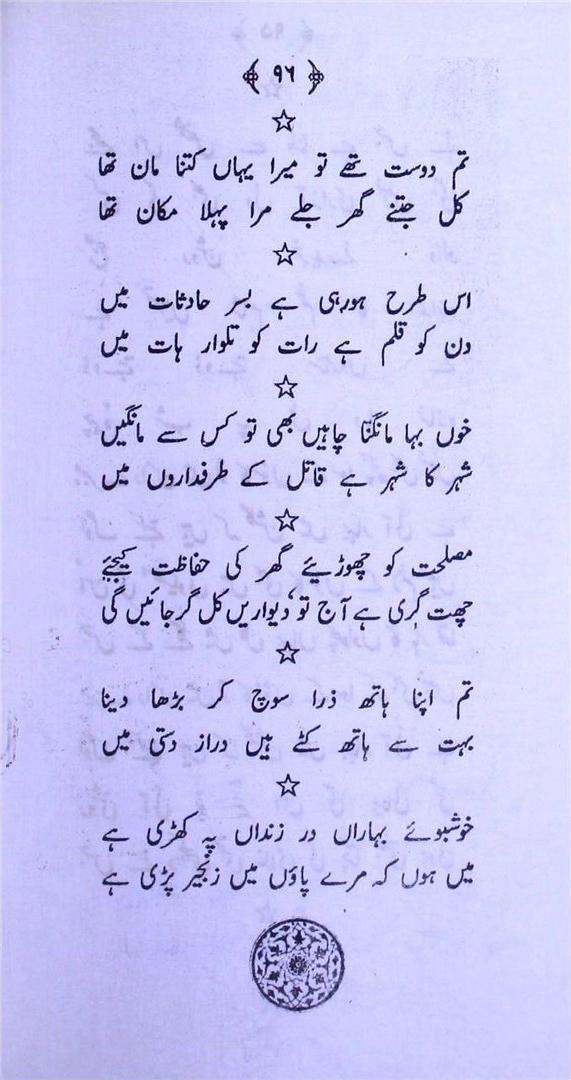 ۹۶
☆
تم دوست تھے تو میرا یہاں کتنا مان تھا
کل جتنے گھر جلے مرا پہلا مکان تھا
☆
اس طرح ہورہی ہے بسر حادثات میں
دن کو قلم ہے رات کو تلوار ہات میں
☆
خوں بہا مانگنا چاہیں بھی تو کس سے مانگیں
شہر کا شہر ہے قاتل کے طرفداروں میں
☆
مصلحت کو چھوڑیئے گھر کی حفاظت کیجیے
چھت گری ہے آج تو، دیواریں کل گر جائیں گی
☆
تم اپنا ہاتھ ذرا سوچ کر بڑھا دینا
بہت سے ہاتھ کٹے ہیں دراز دستی میں
☆
خوشبوئے بہاراں در زنداں پہ کھڑی ہے
میں ہوں کہ مرے پاؤں میں زنجیر پڑی ہے